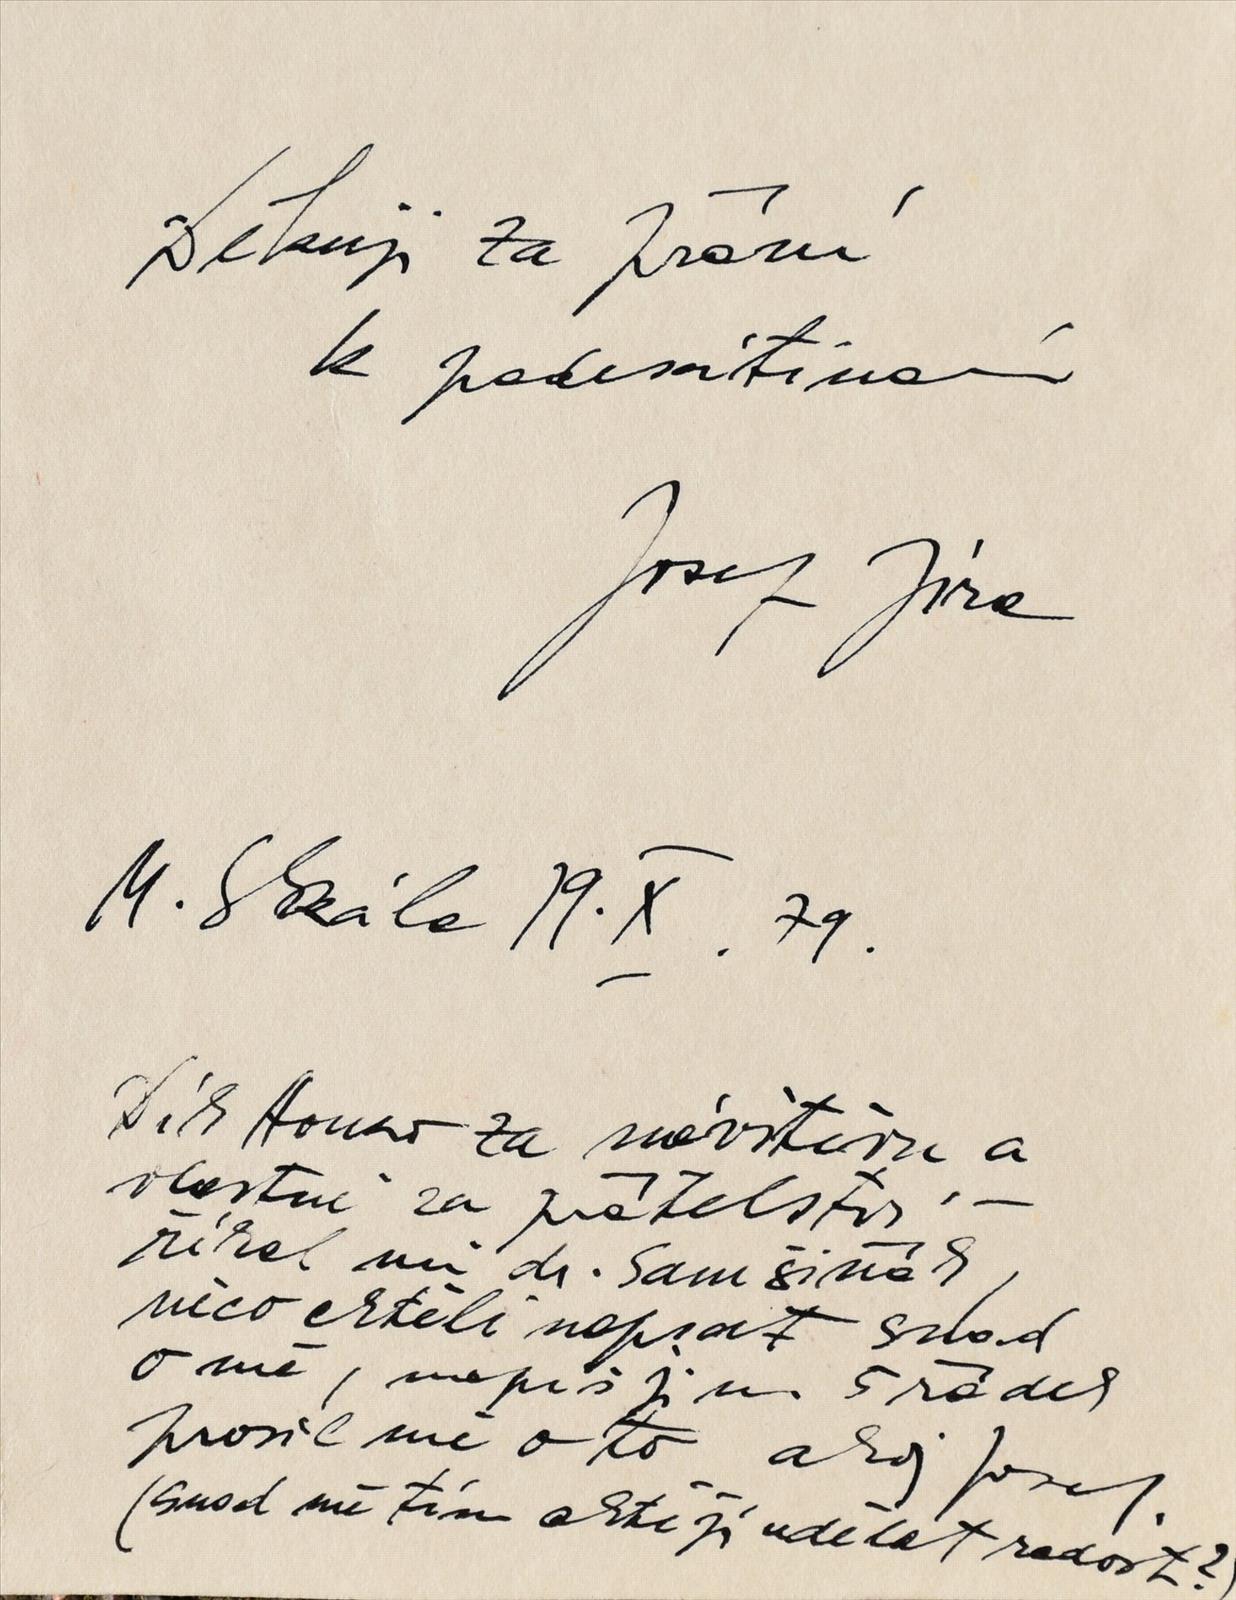 Děkuji za přání
k padesátinám
Josef Jíra
M. Skála 19. X. 79.
Dík Honzo za návštěvu a
vlastně za přátelství –
říkal mi dr. Samšiňák,
něco chtěli napsat snad
o mě, napiš jim 5 řádek
prosil mě o to ahoj Josef.
(snad mě tím chtějí udělat radost?)